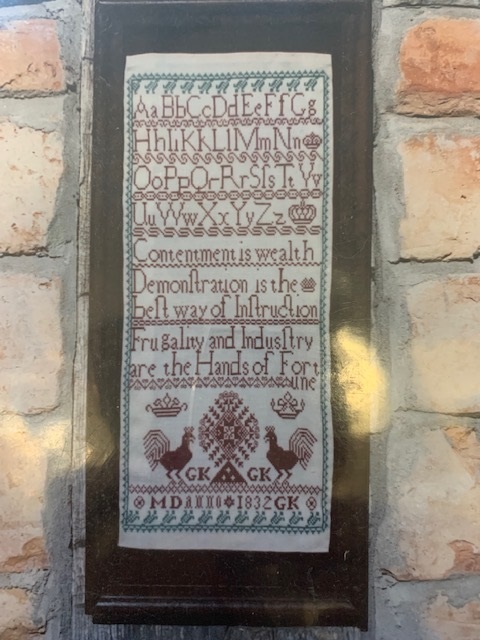 AaBbCcDdEeFfGg
HhIiKkLlMmNn
OoPpQrRrSſsTtVv
UuWwXxYyZz
Contentment is wealth
Demonſtration is the
beſt way of Inſtruction
Frugality and Induſtry
are the Hands of Fort
une
GK GK
MD ANNO 1832 GK